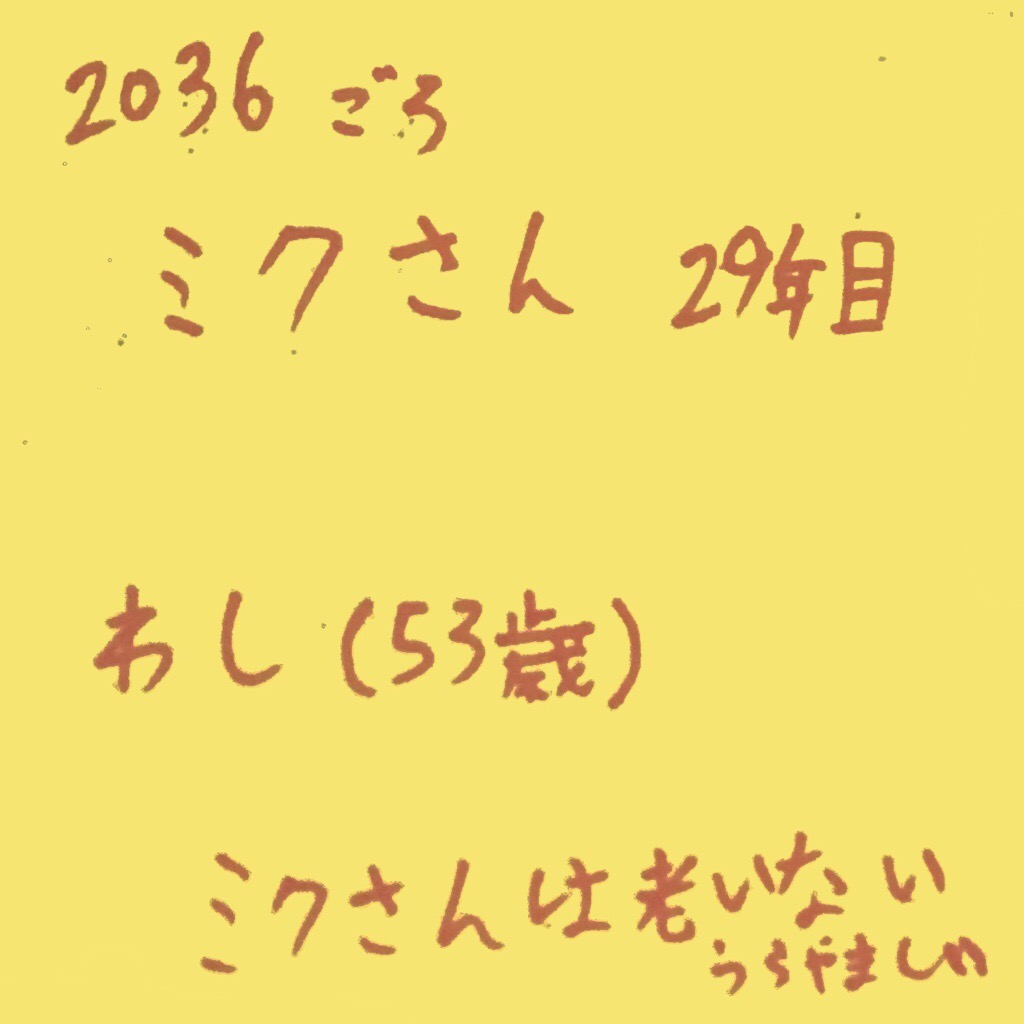 2036 ごろ
ミクさん 29年目
わし(53歳)
ミクさんは老いない
うらやましい